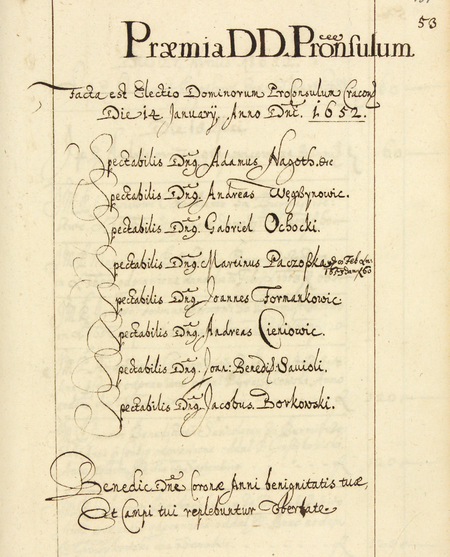 53
Præmia DD. Proconsulum.
Facta est Electio Dominorum Proconsulum Cracon
Die 14 January, Anno Dnī. 1652.
Spectabilis Dnꝰ. Adamus Nagoth. etc
Spectabilis Dnꝰ. Andreas Węgrzynowic.
Spectabilis Dnꝰ. Gabriel Ochocki.
Spectabilis Dnꝰ. Martinus Paczoßka
Spectabilis Dnꝰ. Joannes Formankowic
Spectabilis Dnꝰ. Andreas Cieniowic.
Spectabilis Dnꝰ. Joan: Bened: Savioli.
Spectabilis Dnꝰ. Jacobus Borkowski.
Benedic Dne Coronæ Anni benignitatis tuæ,
Et Campi tui replebuntur Ubertate.